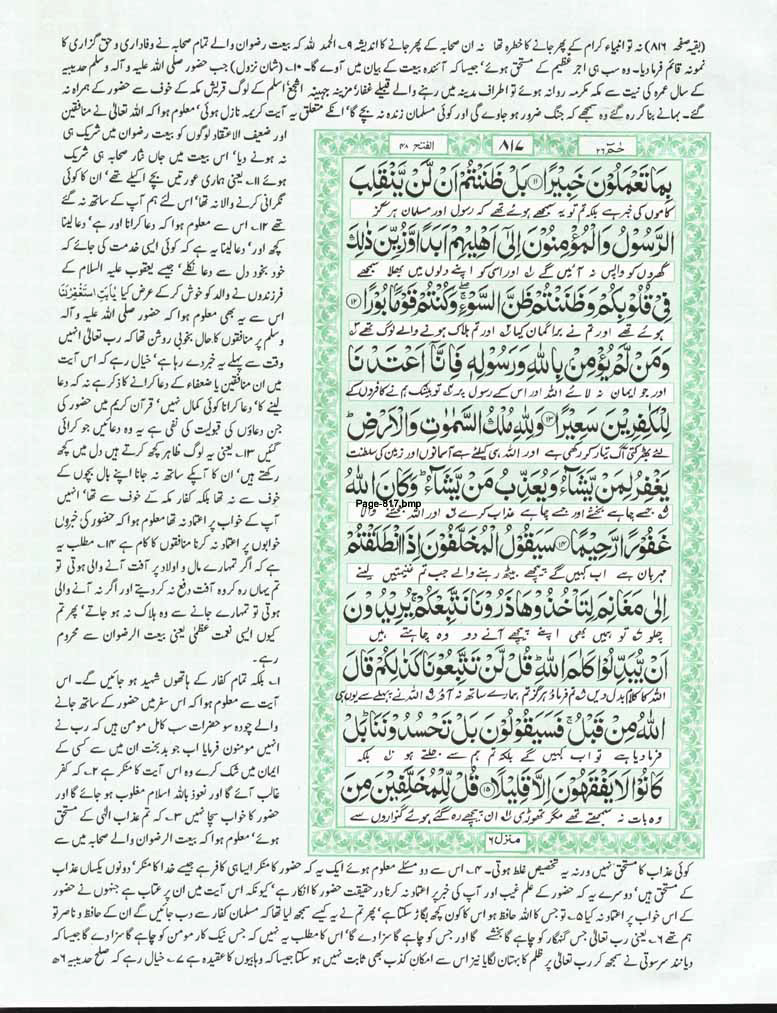 (بقیہ صفحہ ۸۱۶) نہ تو انبیاء کرام کے پھر جانے کا خطرہ تھا نہ ان صحابہ کے پھر جانے کا اندیشہ ۹۔ الحمد للہ کہ بیعت رضوان والے تمام صحابہ نے وفاداری و حق گزاری کا
نمونہ قائم فرما دیا۔ وہ سب ہی اجر عظیم کے مستحق ہوئے' جیسا کہ آئندہ بیعت کے بیان میں آوے گا۔ ۱۰۔ (شان نزول) جب حضور صلی اللہ علیہ و آلہ وسلم حدیبیہ
کے سال عمرہ کی نیت سے مکہ مکرمہ روانہ ہوئے تو اطراف مدینہ میں رہنے والے قبیلے غفار' مزینہ' جہینہ' اشجع' اسلم کے لوگ قریش مکہ کے خوف سے حضور کے ہمراہ نہ
گئے۔ بہانے بنا کر رہ گئے وہ سمجھے کہ جنگ ضرور ہو جاوے گی اور کوئی مسلمان زندہ نہ بچے گا' انکے متعلق یہ آیت کریمہ نازل ہوئی' معلوم ہوا کہ اللہ تعالیٰ نے منافقین
اور ضعیف الاعتقاد لوگوں کو بیعت رضوان میں شریک ہی
نہ ہونے دیا' اس بیعت میں جاں نثار صحابہ ہی شریک
ہوئے ۱۱۔ یعنی ہماری عورتیں بچے اکیلے تھے' ان کا کوئی
نگرانی کرنے والا نہ تھا' اس لئے ہم آپ کے ساتھ نہ گئے
تھے ۱۲۔ اس سے معلوم ہوا کہ دعا کرانا اور ہے' دعا لینا
کچھ اور' دعا لینا یہ ہے کہ کوئی ایسی خدمت کی جائے کہ
خود بخود دل سے دعا نکلے' جیسے یعقوب علیہ السلام کے
فرزندوں نے والد کو خوش کر کے عرض کیا یٰۤاَبَانَا اسْتَغْفِرْلَنَا
اس سے یہ بھی معلوم ہوا کہ حضور صلی اللہ علیہ و آلہ
وسلم پر منافقوں کا حال بخوبی روشن تھا کہ رب تعالیٰ انہیں
وقت سے پہلے یہ خبر دے رہا ہے' خیال رہے کہ اس آیت
میں ان منافقین یا ضعفاء کے دعا کرانے کا ذکر ہے نہ کہ دعا
لینے کا' دعا کرانا کوئی کمال نہیں' قرآن کریم میں حضور کی
جن دعاؤں کی قبولیت کی نفی ہے یہ وہ دعائیں جو کرائی
گئیں ۱۳۔ یعنی یہ لوگ ظاہر کچھ کرتے ہیں دل میں کچھ
رکھتے ہیں' ان کا آپکے ساتھ نہ جانا اپنے بال بچوں کے
خوف سے نہ تھا بلکہ کفار مکہ کے خوف سے تھا' انہیں
آپ کے خواب پر اعتماد نہ تھا معلوم ہوا کہ حضور کی خبروں
خوابوں پر اعتماد نہ کرنا منافقوں کا کام ہے ۱۴۔ مطلب یہ
ہے کہ اگر تمہارے مال و اولاد پر آفت آنے والی ہوتی تو
تم یہاں رہ کر وہ آفت دفع نہ کر دیتے اور اگر نہ آنے والی
ہوتی تو تمہارے جانے سے وہ ہلاک نہ ہو جاتے' پھر تم
کیوں ایسی نعمت عظمیٰ یعنی بیعت الرضوان سے محروم
رہے۔
۱۔ بلکہ تمام کفار کے ہاتھوں شہید ہو جائیں گے۔ اس
آیت سے معلوم ہوا کہ اس سفر میں حضور کے ساتھ جانے
والے چودہ سو حضرات سب کامل مومن ہیں کہ رب نے
انہیں مومنون فرمایا اب جو بدبخت ان میں سے کسی کے
ایمان میں شک کرے وہ اس آیت کا منکر ہے ۲۔ کہ کفر
غالب آئے گا اور نعوذ باللہ اسلام مغلوب ہو جائے گا اور
حضور کا خواب سچا نہیں ۳۔ کہ تم عذاب الٰہی کے مستحق
ہوئے' معلوم ہوا کہ بیعت الرضوان والے صحابہ میں سے
حٰمٓ ۲۶
۸۱۷
الفتح ۴۸
بِمَا تَعْمَلُوْنَ خَبِيْرًا ﴿۱۱﴾ بَلْ ظَنَنْتُمْ اَنْ لَّنْ يَّنْقَلِبَ
کاموں کی خبر ہے بلکہ تم تو یہ سمجھے ہوئے تھے کہ رسول اور مسلمان ہرگز
الرَّسُوْلُ وَالْمُؤْمِنُوْنَ اِلٰٓى اَهْلِيْهِمْ اَبَدًا وَّزُيِّنَ ذٰلِكَ
گھروں کو واپس نہ آئیں گے ۱ اور اسی کو اپنے دلوں میں بھلا سمجھے
فِيْ قُلُوْبِكُمْ وَظَنَنْتُمْ ظَنَّ السَّوْءِ ۖ وَكُنْتُمْ قَوْمًۢا بُوْرًا ﴿۱۲﴾
ہوئے تھے اور تم نے برا گمان کیا ۲ اور تم ہلاک ہونے والے لوگ تھے ۳
وَمَنْ لَّمْ يُؤْمِنْۢ بِاللّٰهِ وَرَسُوْلِهٖ فَاِنَّآ اَعْتَدْنَا
اور جو ایمان نہ لائے اللہ اور اس کے رسول پر ۴ تو بیشک ہم نے کافروں کے
لِلْكٰفِرِيْنَ سَعِيْرًا ﴿۱۳﴾ وَلِلّٰهِ مُلْكُ السَّمٰوٰتِ وَالْاَرْضِ ؕ
لئے بھڑکتی آگ تیار کر رکھی ہے اور اللہ ہی کیلئے ہے آسمانوں اور زمین کی سلطنت
يَغْفِرُ لِمَنْ يَّشَآءُ وَيُعَذِّبُ مَنْ يَّشَآءُ ؕ وَكَانَ اللّٰهُ
۵ جسے چاہے بخشے اور جسے چاہے عذاب کرے ۶ اور اللہ بخشنے والا
Page-817.bmp
غَفُوْرًا رَّحِيْمًا ﴿۱۴﴾ سَيَقُوْلُ الْمُخَلَّفُوْنَ اِذَا انْطَلَقْتُمْ
مہربان ہے اب کہیں گے پیچھے بیٹھ رہنے والے جب تم غنیمتیں لینے
اِلٰى مَغَانِمَ لِتَاْخُذُوْهَا ذَرُوْنَا نَتَّبِعْكُمْ ۚ يُرِيْدُوْنَ
چلو ۷ تو ہمیں بھی اپنے پیچھے آنے دو وہ چاہتے ہیں
اَنْ يُّبَدِّلُوْا كَلٰمَ اللّٰهِ ؕ قُلْ لَّنْ تَتَّبِعُوْنَا كَذٰلِكُمْ قَالَ
اللہ کا کلام بدل دیں ۸ تم فرماؤ ہرگز تم ہمارے ساتھ نہ آؤ ۹ اللہ نے پہلے سے یوں ہی
اللّٰهُ مِنْ قَبْلُ ۚ فَسَيَقُوْلُوْنَ بَلْ تَحْسُدُوْنَنَا ؕ بَلْ
فرما دیا ہے تو اب کہیں گے بلکہ تم ہم سے جلتے ہو ۱۰ بلکہ
كَانُوْا لَا يَفْقَهُوْنَ اِلَّا قَلِيْلًا ﴿۱۵﴾ قُلْ لِّلْمُخَلَّفِيْنَ مِنَ
وہ بات نہ سمجھتے تھے مگر تھوڑی ۱۱ ان پیچھے رہ گئے ہوئے گنواروں سے
منزل ۶
کوئی عذاب کا مستحق نہیں ورنہ یہ تخصیص غلط ہوتی۔ ۴۔ اس سے دو مسئلے معلوم ہوئے ایک یہ کہ حضور کا منکر ایسا ہی کافر ہے جیسے خدا کا منکر' دونوں یکساں عذاب
کے مستحق ہیں' دوسرے یہ کہ حضور کے علم غیب اور آپ کی خبر پر اعتماد نہ کرنا در حقیقت حضور کا انکار ہے' کیونکہ اس آیت میں ان پر عتاب ہے جنہوں نے حضور
کے اس خواب پر اعتماد نہ کیا ۵۔ تو جس کا اللہ حافظ ہو اس کا کون کچھ بگاڑ سکتا ہے' پھر تم نے یہ کیسے سمجھ لیا تھا کہ مسلمان کفار سے دب جائیں گے ان کے حافظ و ناصر تو
ہم تھے ۶۔ یعنی رب تعالیٰ جس گنہگار کو چاہے گا بخشے گا اور جس کو چاہے گا سزا دے گا' اس کا مطلب یہ نہیں کہ جس نیک کار مومن کو چاہے گا سزا دے گا جیسا کہ
دیانند سرسوتی نے سمجھ کر رب تعالیٰ پر ظلم کا بہتان لگایا نیز اس سے امکان کذب بھی ثابت نہیں ہو سکتا جیسا کہ وہابیوں کا عقیدہ ہے ۷۔ خیال رہے کہ صلح حدیبیہ ۶ھ